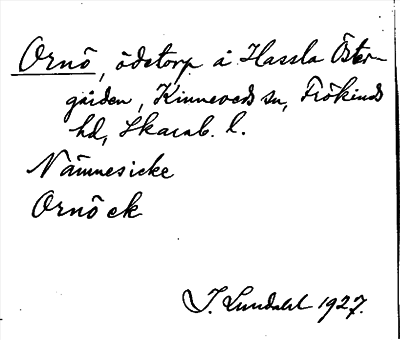 Ornö, ödetorp å Hassla Öster-
gården, Kinneveds sn, Frökinds
hd, Skarab. l.
Nämnes icke
Ornö ek
J. Lundahl 1927.